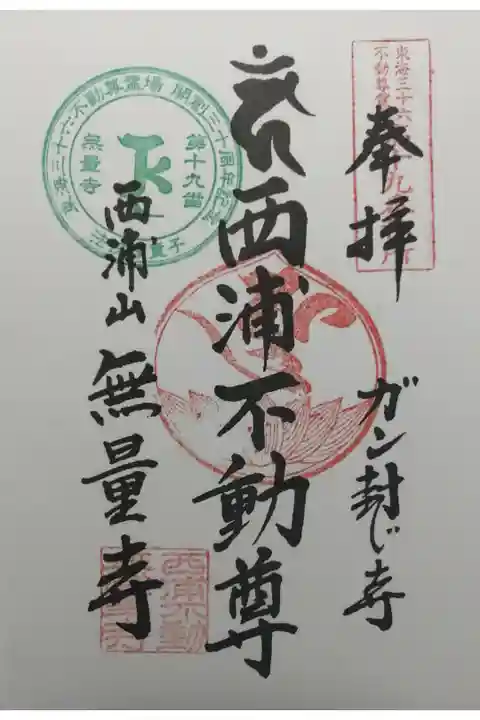 奉拝
ガン封じ寺
西浦不動尊
西浦山
無量寺
東海三十六
不動尊霊
第十九番
無量寺
東海三十六不動尊霊場 開創三十周年記念
西浦不動